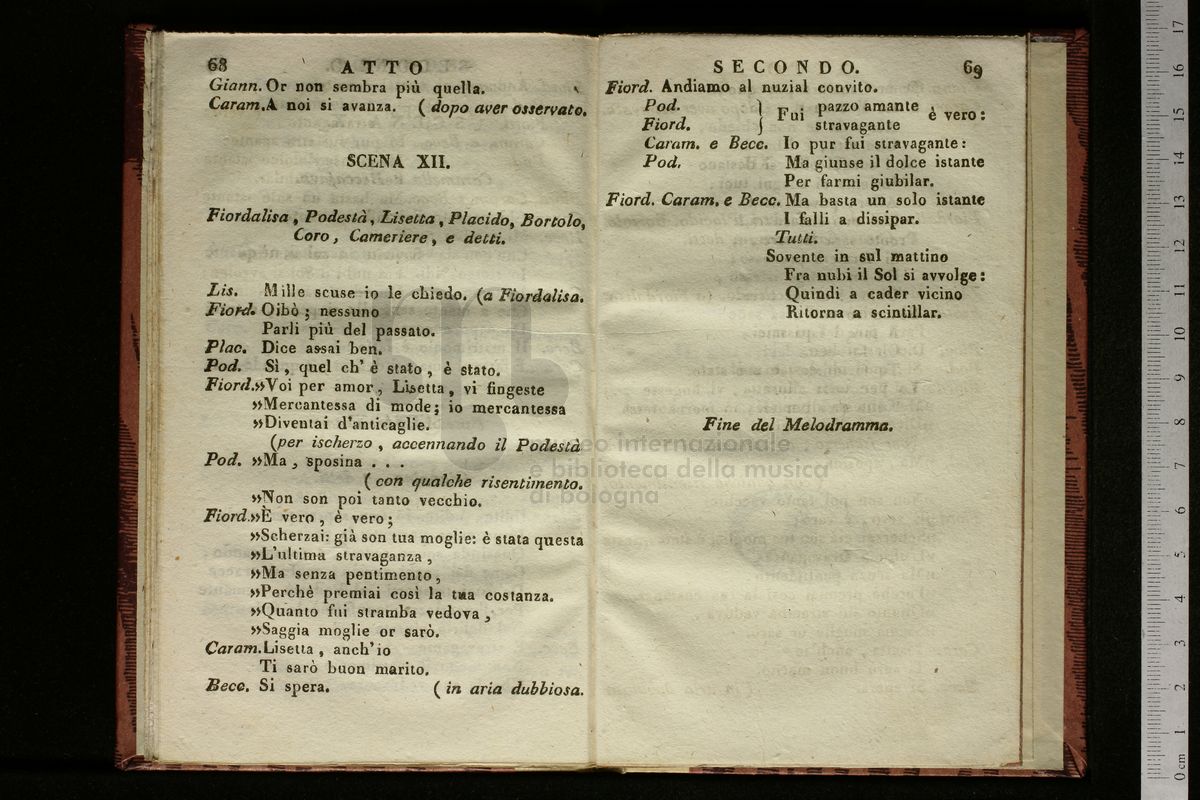 68 ATTO
Giann. Or non sembra più quella.
Caram. A noi si avanza. ( dopo aver osservato.
SCENA XII.
Fiordalisa , Podestà , Lisetta , Placido, Bortolo,
Coro , Cameriere , e detti.
Lis. Mille scuse io le chiedo. (a Fiordalisa.
Fiord. Oibò ; nessuno
Parli più del passato.
Plac. Dice assai ben.
Pod. Sì , quel ch' è stato , è stato.
Fiord. »Voi per amor , Lisetta , vi fingeste
»Mercantessa di mode; io mercantessa
»Diventai d'anticaglie.
(per ischerzo , accennando il Podestà
Pod. »Ma , sposina . . .
( con qualche risentimento.
»Non son poi tanto vecchio.
Fiord. »È vero , è vero ;
»Scherzai: già son tua moglie: è stata questa
»L'ultima stravaganza ,
»Ma senza pentimento ,
»Perchè premiai così la tua costanza.
»Quanto fui stramba vedova ,
»Saggia moglie or sarò.
Caram. Lisetta , anch' io
Ti sarò buon marito.
Becc. Si spera. ( in aria dubbiosa.
SECONDO. 69
Fiord. Andiamo al nuzial convito.
Pod. } Fui pazzo amante è vero :
Fiord. stravagante
Caram. e Becc. Io pur fui stravagante :
Pod. Ma giunse il dolce istante
Per farmi giubilar.
Fiord. Caram. e Becc. Ma basta un solo istante
I falli a dissipar.
Tutti.
Sovente in sul mattino
Fra nubi il Sol si avvolge :
Quindi a cader vicino
Ritorna a scintillar.
Fine del Melodramma.
museo internazionale
e biblioteca della musica
di bologna
0 cm 1 2 3 4 5 6 7 8 9 10 11 12 13 14 15 16 17